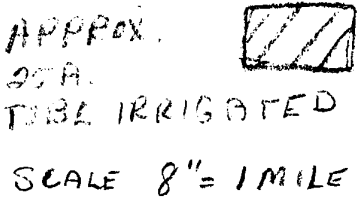 APPROX.
25 A.
TO BE IRRIGATED
SCALE 8" = 1 MILE